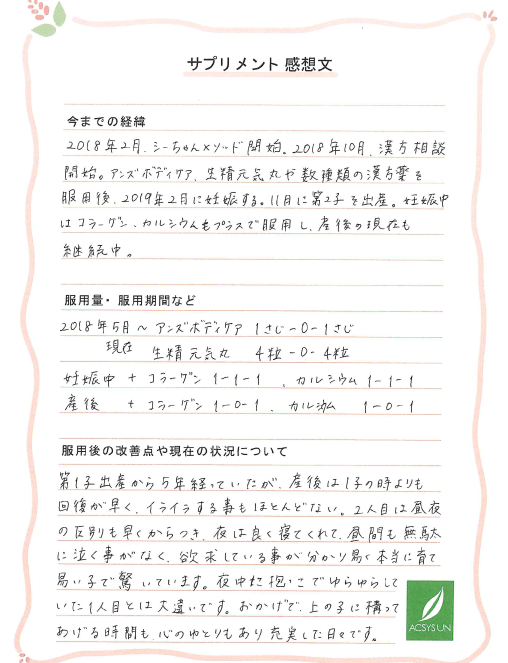 サプリメント 感想文
今までの経緯
2018年2月、シーちゃんメソッド開始。2018年10月、漢方相談
開始。アンズボディケア、生精元気丸や数種類の漢方薬を
服用後、2019年2月に妊娠する。11月に第2子を出産。妊娠中
はコラーゲン、カルシウムもプラスで服用し、産後の現在も
継続中。
服用量・服用期間など
2018年5月～ アンズボディケア 1さじ-0-1さじ
現在 生精元気丸 4粒-0-4粒
妊娠中 + コラーゲン 1-1-1 、カルシウム 1-1-1
産後 + コラーゲン 1-0-1 、カルシウム 1-0-1
服用後の改善点や現在の状況について
第1子出産から5年経っていたが、産後は1子の時よりも
回復が早く、イライラする事もほとんどない。2人目は昼夜
の区別も早くからつき、夜は良く寝てくれて、昼間も無駄
に泣く事がなく、欲求している事が分かり易く本当に育て
易い子で驚いています。夜中抱っこでゆらゆらして
いた1人目とは大違いです。おかげで、上の子に構って
あげる時間も、心のゆとりもあり充実した日々です。
ACSYS UN